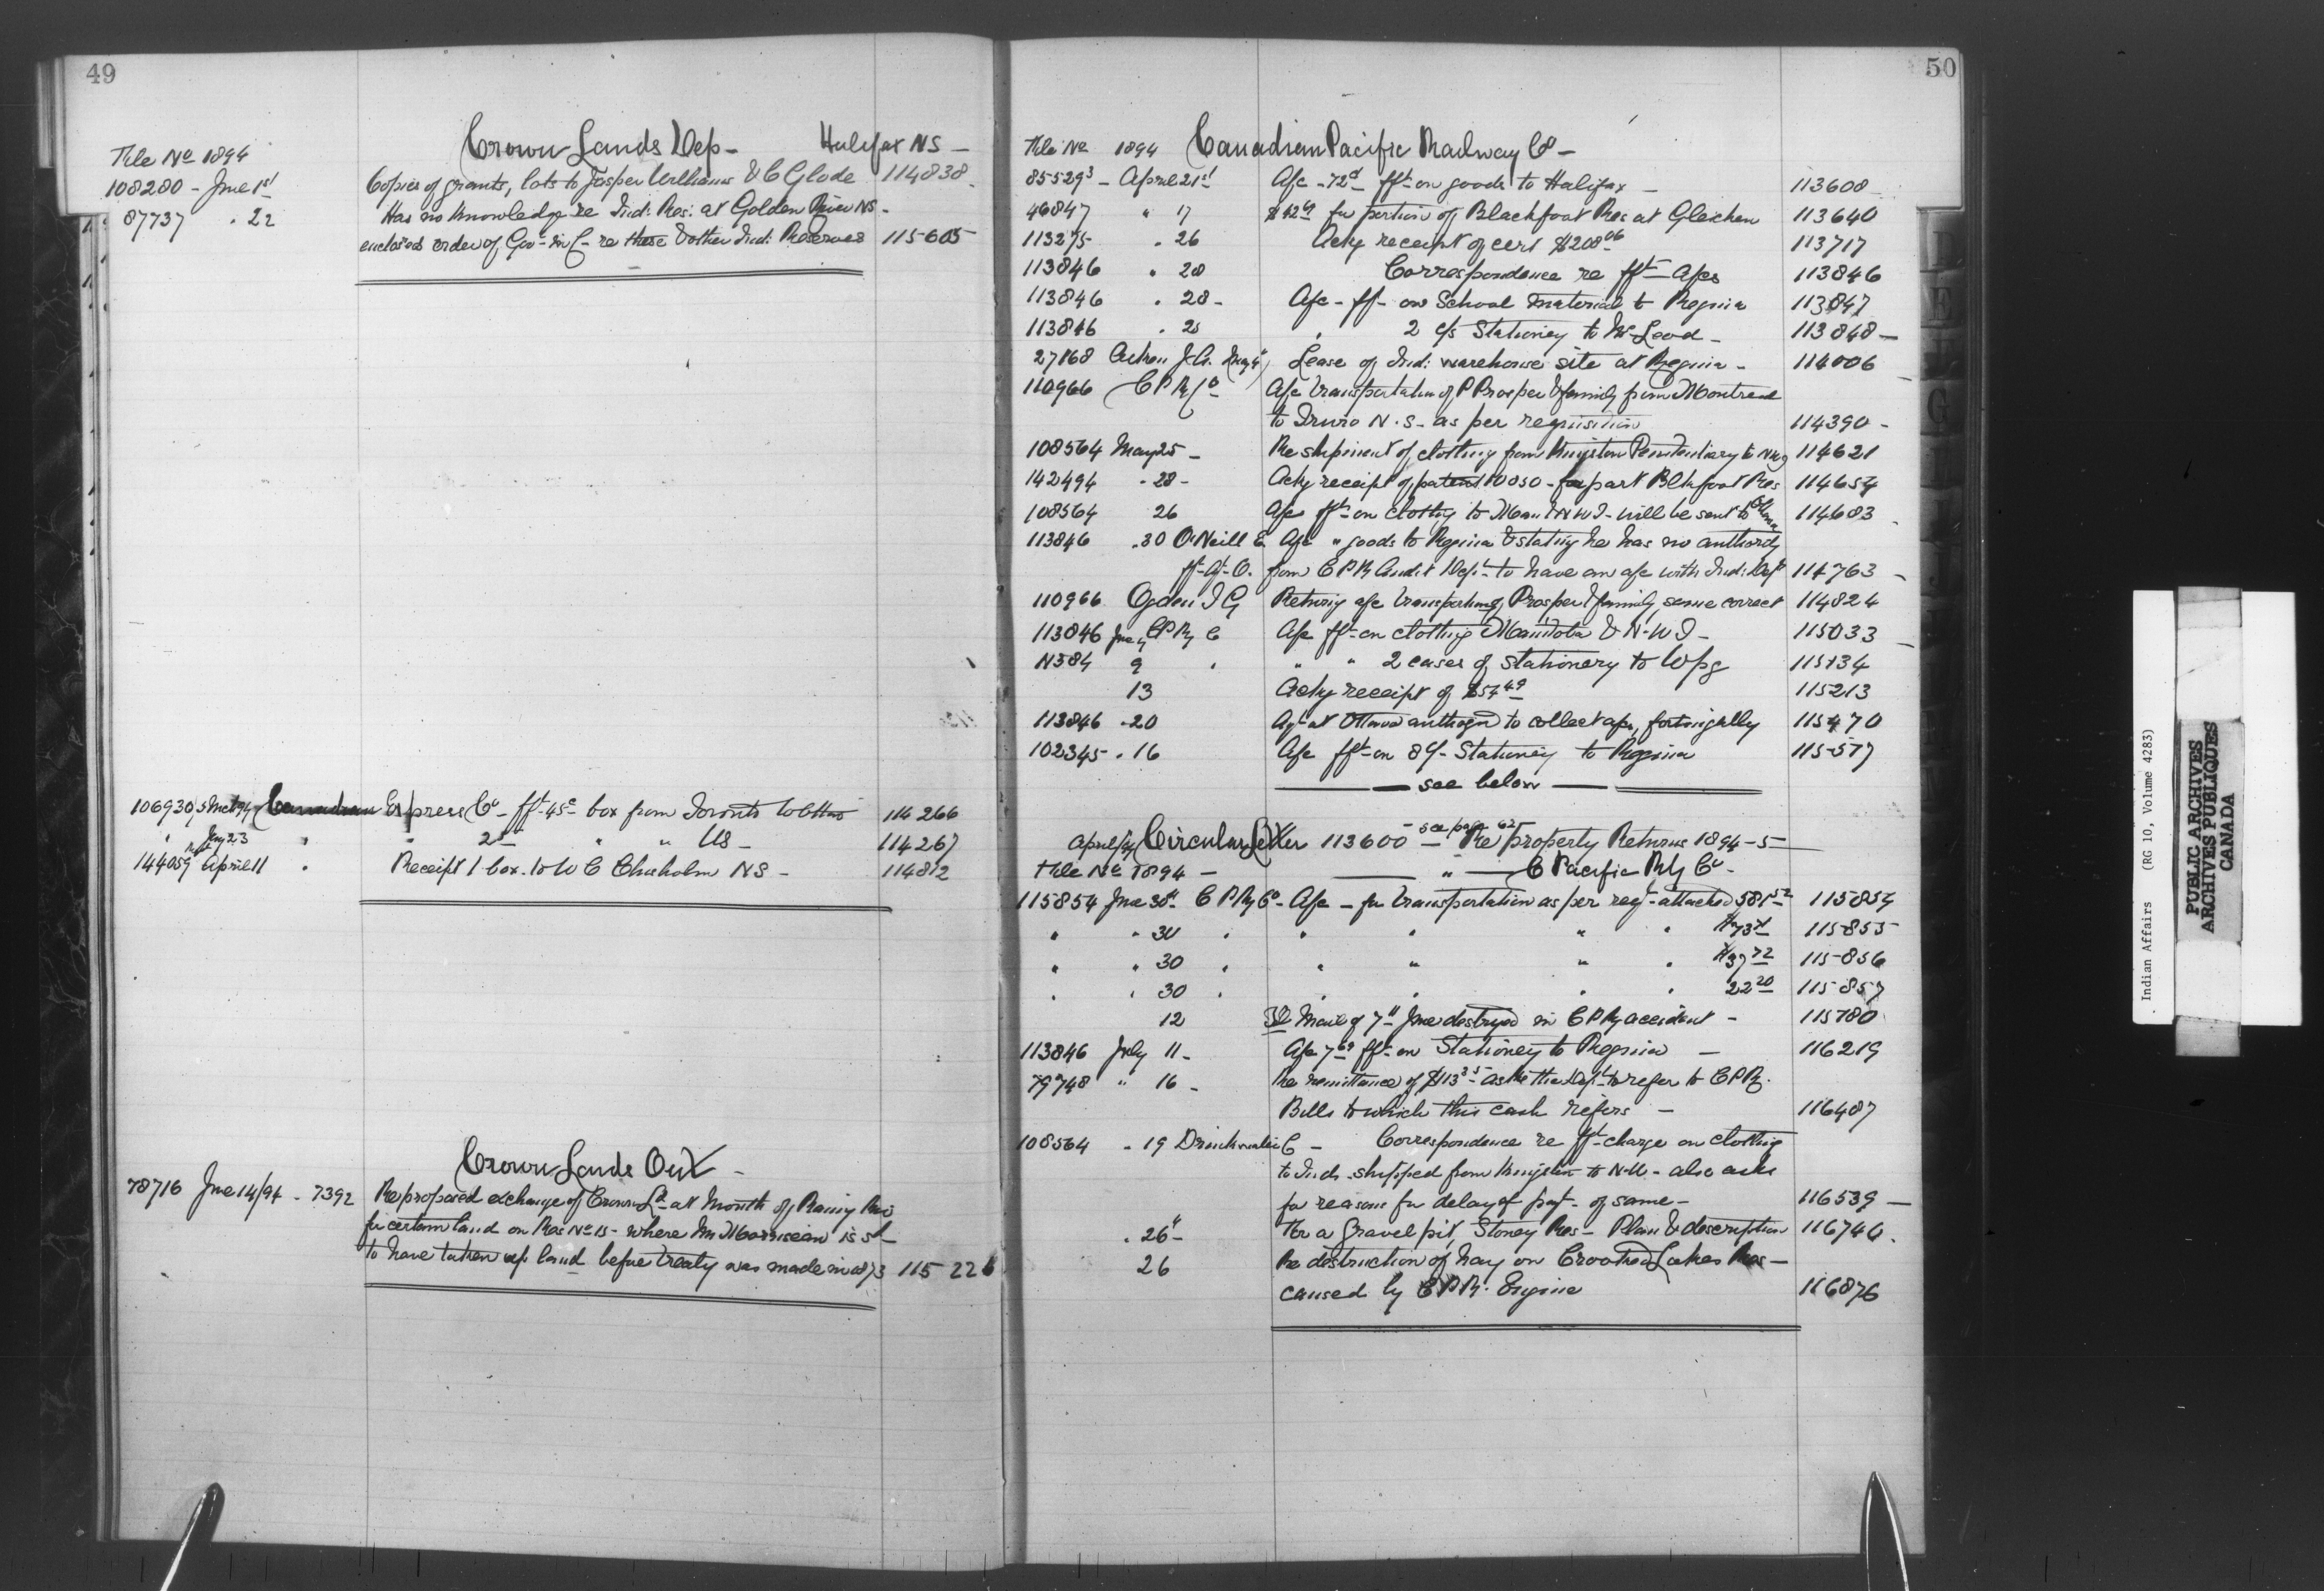 49
Crown Lands Dep - Halifax NS -
File No 1894
108280 - Jne 1st Copies of grants, lots to Jasper Williams & C Glode 114838
87737 " 22 Has no knowledge re Ind: Res: at Golden River NS -
encloses order of Gov - in C - re these & other Ind: Reserves 115605
106930 Canadian Express Co - fft 45c box from Toronto to 114266
" " " " US - 114267
144059 April 11 " Receipt 1 box to W C Chisholm NS - 114812
Crown Lands Ont -
78716 Jne 14/94 - 7392 Re proposed exchange of Crown Ld at Mouth of Rainy Riv
for certain land on Res No 15 - where Wm Morriseau is sd
to have taken up land before treaty was made in 1873 115 226
50
File No 1894 Canadian Pacific Railway Co -
85529 3 - April 21st A/c - 72 c fft on goods to Halifax - 113608
46847 " 17 for portion of Blackfoot Res at Gleichen 113640
113275 " 26 Ackg receipt of cert $208 06 113717
113846 " 28 Correspondence re fft A/cs 113846
113846 " 28 - A/c - fft - on School material to Regina 113847
113846 " 28 " 2 c/s Stationery to McLeod - 113848 -
27168 Lease of Ind: warehouse site at Regina - 114006
110966 C P Ry Co - A/c transportation of P Prosper & family from Montreal
to Truro N.S. as per requisition 114390 -
108564 May 25 - Re shipment of clothing from Kingston Penitentiary to 114621
142494 " 28 - Ackg receipt of patent 10050 - for part Blkfoot Res 114654
108564 26 A/cs fft on clothg to Man & N W T - will be sent to Ottawa 114683
113846 " 30 O'Neill E A/c " goods to Regina & stating he has no authority
fft - Agt - O. from C P R Audit Dept to have an a/c with Ind: Dept 114763 -
110966 Ogden I G Returng a/c transporting Prosper & family, same correct 114824
113846 Jne 4 C P Ry C A/c fft on clothing Manitoba & N-W T - 115033
N584 9 " " " 2 cases of stationery to Wpg 115134
13 Ackg receipt of $54 49 115213
113846 " 20 Agt at Ottawa authozd to collect a/cs, fortnightly 115470
102345 " 16 A/c fft on 8 c/- Stationery to Regina 115517
see below
April Circular Letter 113600 - see page 62 - Re property Returns 1894-5
File No 1894 - " C Pacific Rly Co -
115854 Jne 30th C P Ry Co - A/c - for transportation as per reqt attached 581 52 115854
" " 30 " " " " " 115855
" " 30 " " " " " $37 72 115856
" " 30 " " " " " 22 20 115857
12 Mail of 7th Jne destroyed in C P Ry accident - 115180
113846 July 11 - A/c 7 69 fft on Stationery to Regina - 116219
79748 " 16 - Re remittance of $113 35 - asks the Dept to refer to C P R
Bills to which this cash refers - 116487
108564 " 19 Drinkwater C - Correspondence re fft charge on clothing
to Inds. shipped from Kingston to N-W - also asks
for reasons for delay of payt - of same - 116539 -
" 26th - For a gravel pit, Stoney Res - Plan & description 116746
26 Re destruction of hay on Crooked Lakes Res -
caused by C P R. Engine 116876
Indian Affairs (RG 10, Volume 4283)
PUBLIC ARCHIVES
ARCHIVES PUBLIQUES
CANADA